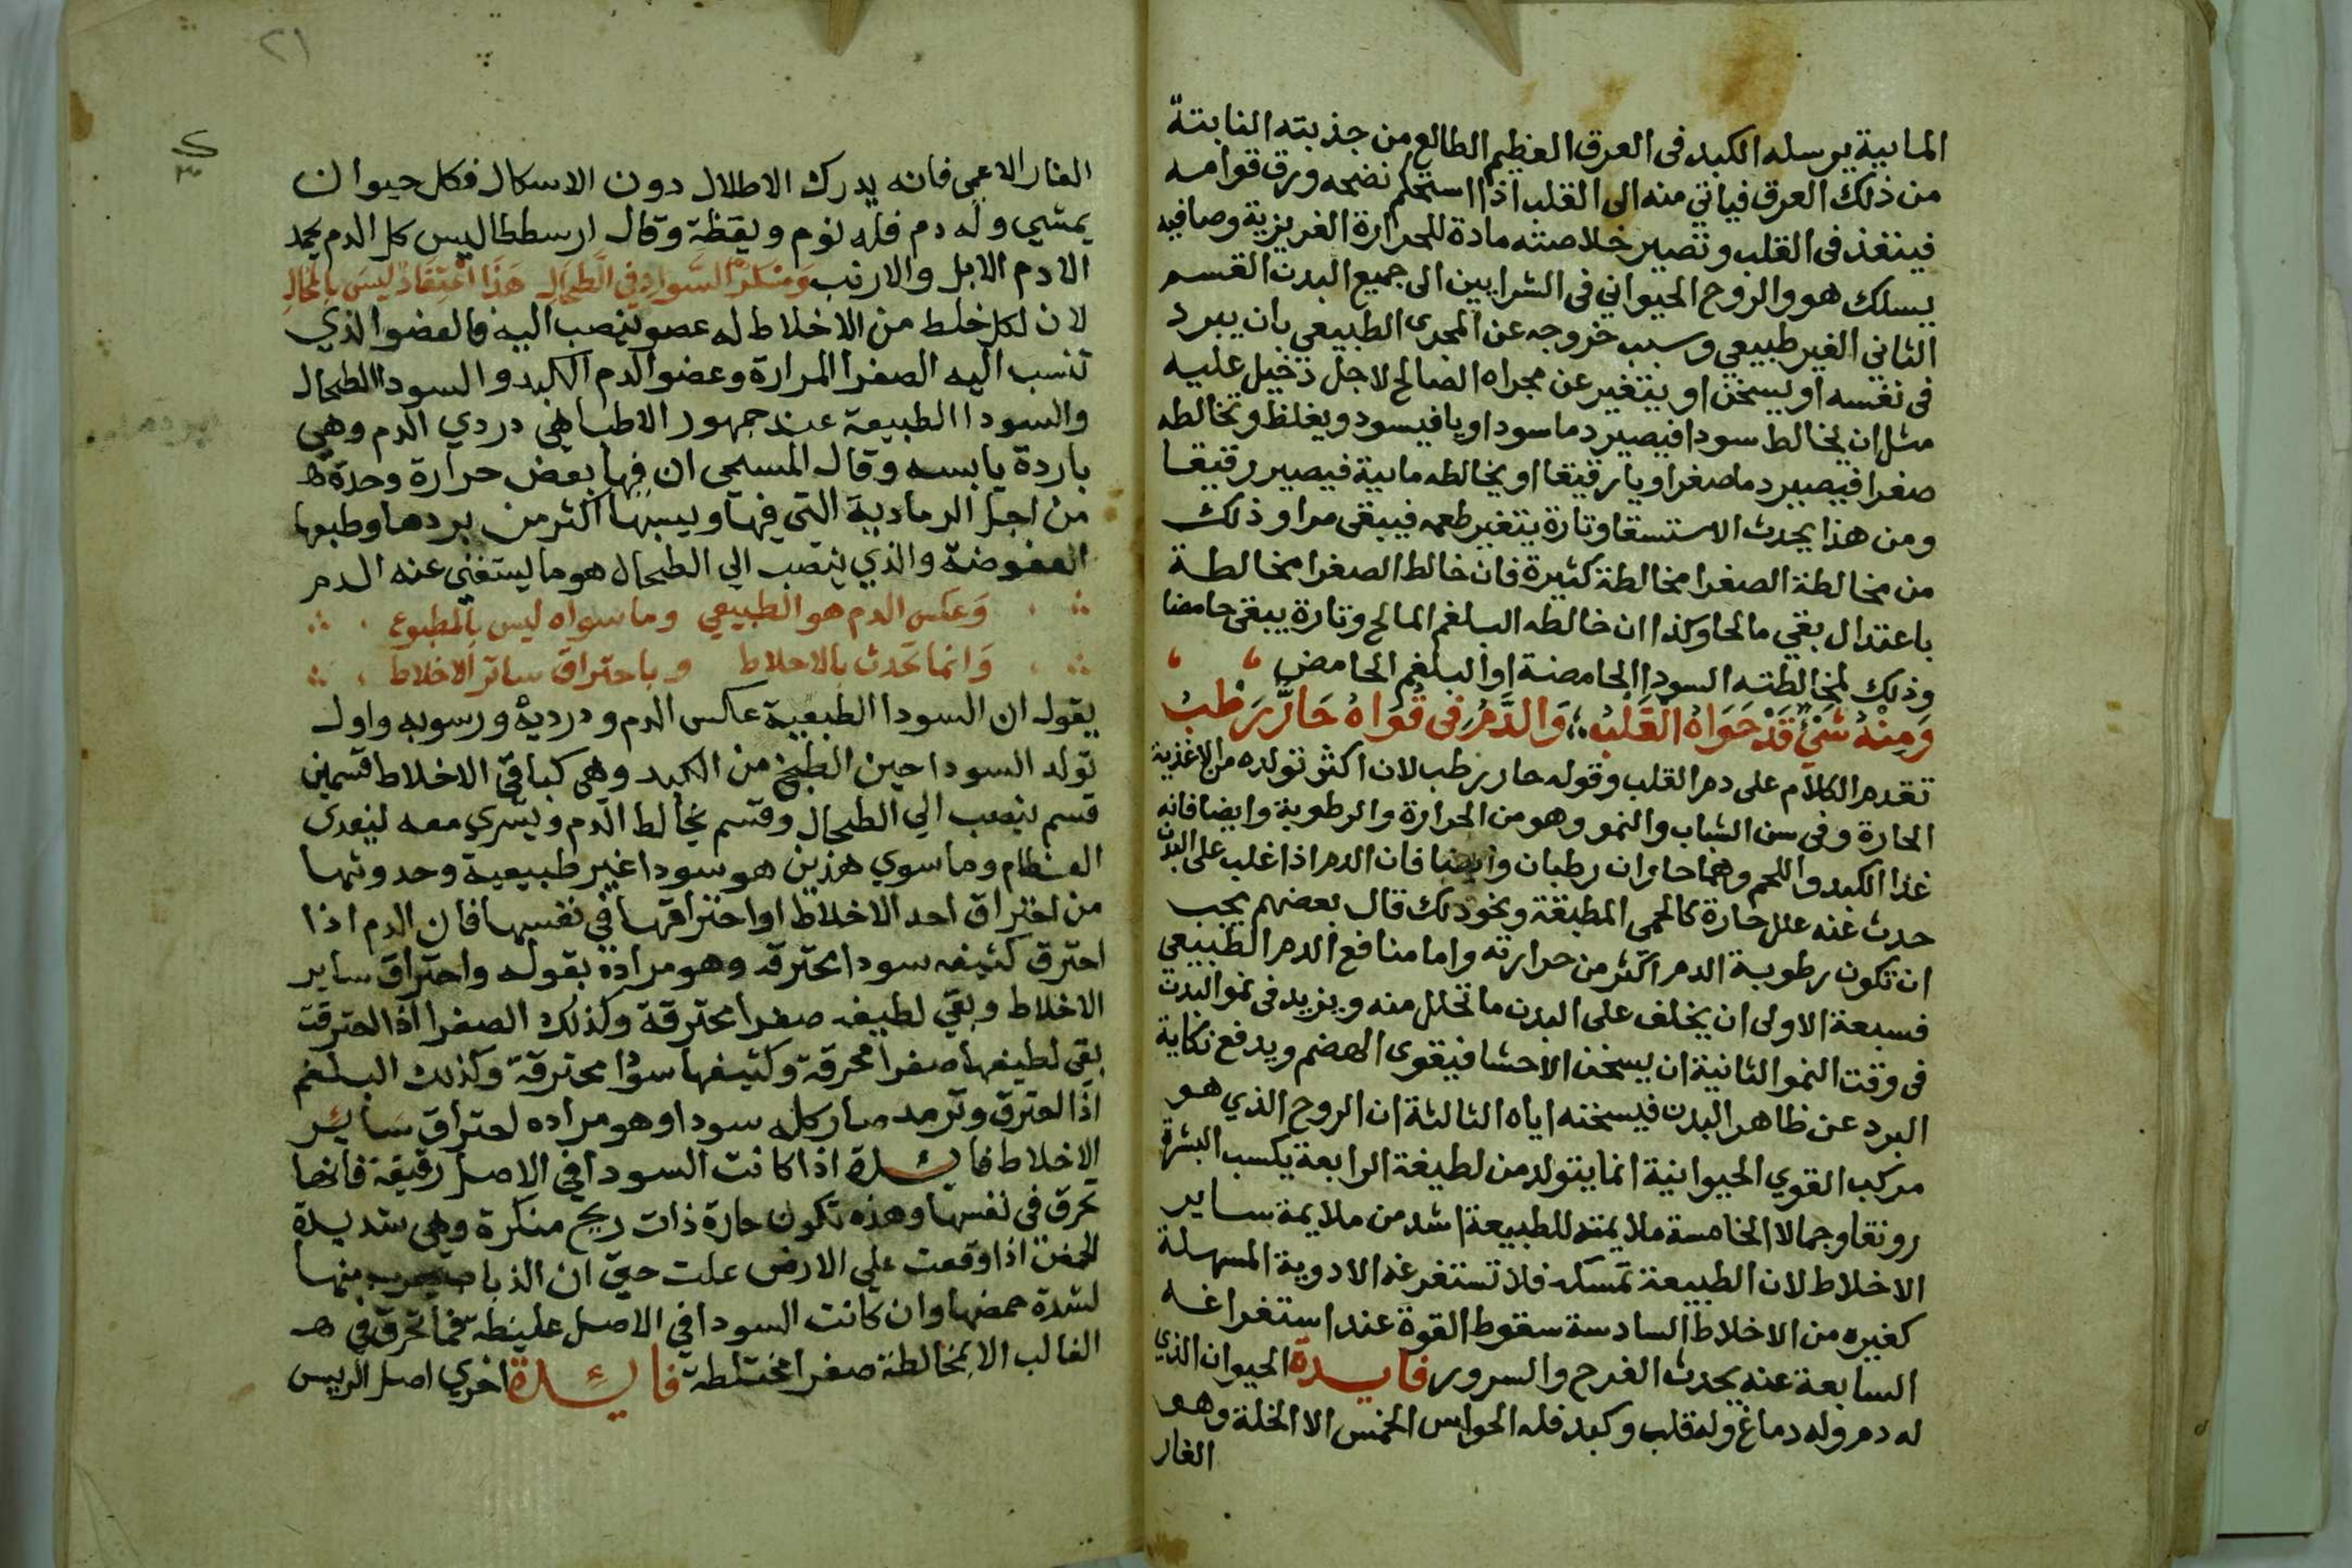 المايية يرسله الكبد فى العرق العظيم الطالع من جذبته النابتة
من ذلك العرق فياتي منه الى القلب اذا استحكم نضجه ورق قوامه
فينفذ فى القلب وتصير خلاصته مادة للحرارة الغريزية وصافيه
يسلك هو والروح الحيواني فى الشرايين الى جميع البدن القسم
الثاني الغير طبيعي وسبب خروجه عن المجرى الطبيعي بان يبرد
فى نفسه او يسخن او يتغير عن مجراه الصالح لاجل دخيل عليه
مثل ان يخالط سودا فيصير دما سوداويا فيسود ويغلظ وتخالطه
صفرا فيصير دما صفراويا رقيقا او يخالطه مايية فيصير رقيقا
ومن هذا يحدث الاستسقا وتارة يتغير طعمه فيبقى مرا وذلك
من مخالطة الصفرا مخالطة كثيرة فان خالط الصفرا مخالطة
باعتدال بقي مالحا وكذا ان خالطه البلغم المالح وتارة يبقى حامضا
وذلك لمخالطته السودا الحامضة او البلغم الحامض
وَمِنْهُ شَيْءٌ قَدْ حَوَاهُ الْقَلْبُ وَالدَّمُ فِى قُوَاهُ حَارٌّ رَطْبُ
تقدم الكلام على دم القلب وقوله حار رطب لان اكثر تولده من الاغذية
الحارة وفى سن الشباب والنمو وهو من الحرارة والرطوبة وايضا فانه
غذا الكبد واللحم وهما حاران رطبان وايضا فان الدم اذا غلب على البدن
حدث عنه علل حارة كالحمى المطبقة ونحو ذلك قال بعضهم يجب
ان تكون رطوبة الدم اكثر من حرارته واما منافع الدم الطبيعي
فسبعة الاولى ان يخلف على البدن ما تحلل منه ويزيد فى نمو البدن
فى وقت النمو الثانية ان يسخن الاحشا فيقوى الهضم ويدفع نكاية
البرد عن ظاهر البدن فيسخنه اياه الثالثة ان الروح الذي هو
مركب القوي الحيوانية انما يتولد من لطيفة الرابعة يكسب البشرة
رونقا وجمالا الخامسة ملايمته للطبيعة اشد من ملايمة ساير
الاخلاط لان الطبيعة تمسكه فلا تستفرغه الادوية المسهلة
كغيره من الاخلاط السادسة سقوط القوة عند استفراغه
السابعة عنه يحدث الفرح والسرور فايدة الحيوان الذي
له دم وله دماغ وله قلب وكبد فله الحواس الخمس الا الخلة وهو
الفار
٢١
الفار الاعمى فانه يدرك الاطلال دون الاسكال فكل حيوان
يمشي وله دم فله نوم ويقظة وقال ارسططاليس كل الدم يجمد
الا دم الابل والارنب وَمَسْكَنُ السَّوادِ فِي الطِّحَالِ هَذَا اعْتِقَادٌ لَيْسَ بِالْمُحَالِ
لان لكل خلط من الاخلاط له عضو ينصب اليه فالعضو الذي
تنسب اليه الصفرا المرارة وعضو الدم الكبد والسودا الطحال
والسودا الطبيعة عند جمهور الاطبا هي دردي الدم وهي
باردة يابسه وقال المسيحى ان فيها بعض حرارة وحدة
من اجل الرمادية التي فيها ويبسها اكثر من بردها وطبعها
العفوصة والذي ينصب الي الطحال هو ما يستغني عنه الدم
وَعكس الدم هو الطبيعي وما سواه ليس بالمطبوع
وَانما تحدث بالاحلاط وباحتراق سائر الاخلاط
يقول ان السودا الطبيعية عكس الدم ودرديه ورسوبه واول
تولد السودا حين الطبخ من الكبد وهي كباقي الاخلاط قسمين
قسم ينصب الي الطحال وقسم يخالط الدم ويسري معه ليغدى
العظام وما سوي هذين هو سودا غير طبيعية وحدوثها
من احتراق احد الاخلاط او احتراقها في نفسها فان الدم اذا
احترق كثيفه سودا محترقه وهو مراده بقوله واحتراق ساير
الاخلاط وبقي لطيفه صفرا محترقة وكذلك الصفرا اذا احترقت
بقى لطيفها صفرا محرقة وكثيفها سودا محترقة وكذلك البلغم
اذا احترق وترمد صار كله سودا وهو مراده احتراق سائر
الاخلاط فائدة اذا كانت السودا في الاصل رقيقة فانها
تحرق فى نفسها وهذه تكون حارة ذات ريح منكرة وهي شديدة
الحمض اذا وقعت علي الارض علت حتي ان الذباب يهرب منها
لشدة حمضها وان كانت السودا في الاصل غليظة فما تحرق في
الغالب الا بمخالطة صفرا مختلطة فائدة اخري اصل الرييس